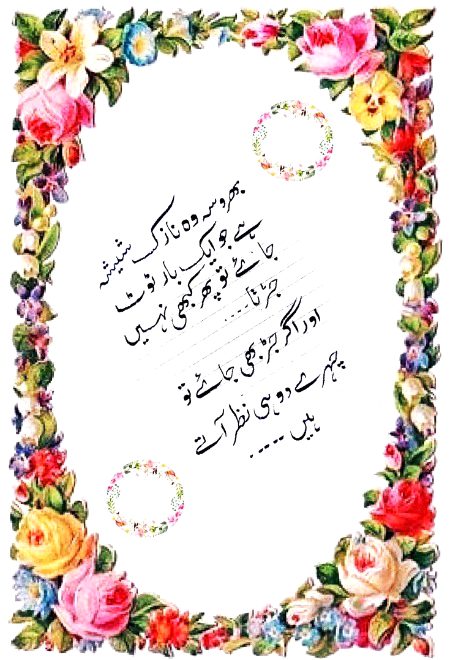 بھروسہ وہ نازک شیشہ
ہے جو ایک بار ٹوٹ
جائے تو پھر کبھی نہیں
جڑتا....
اور اگر جڑ بھی جائے تو
چہرے دو ہی نظر آتے
ہیں .....